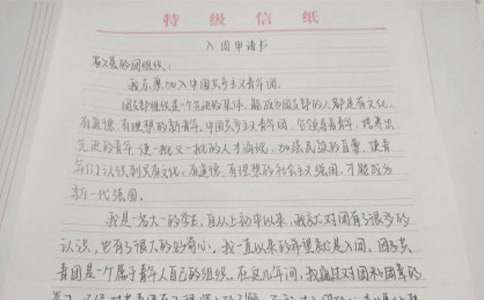 特级信纸
入团申请书
敬爱的团组织：
我志愿加入中国共产主义青年团。
团支部组织是一个先进的集体，能成为团支部的人都是有文化、
有道德、有理想的新青年。中国共产主义青年团，带领着青年，培养出
先进的青年，使一批又一批的人才涌现，加强民族的力量，使青
年们认识到只有文化、有道德、有理想的社会主义强国，才能成为
新一代强国。
我是一名大一的学生，自从上初中以来，我就对团有了很多的
认识，也有了很大的好奇心。我一直以来的希望就是入团。团
青团是一个属于青年人自己的组织。在这几年间，我通过对团和团章的